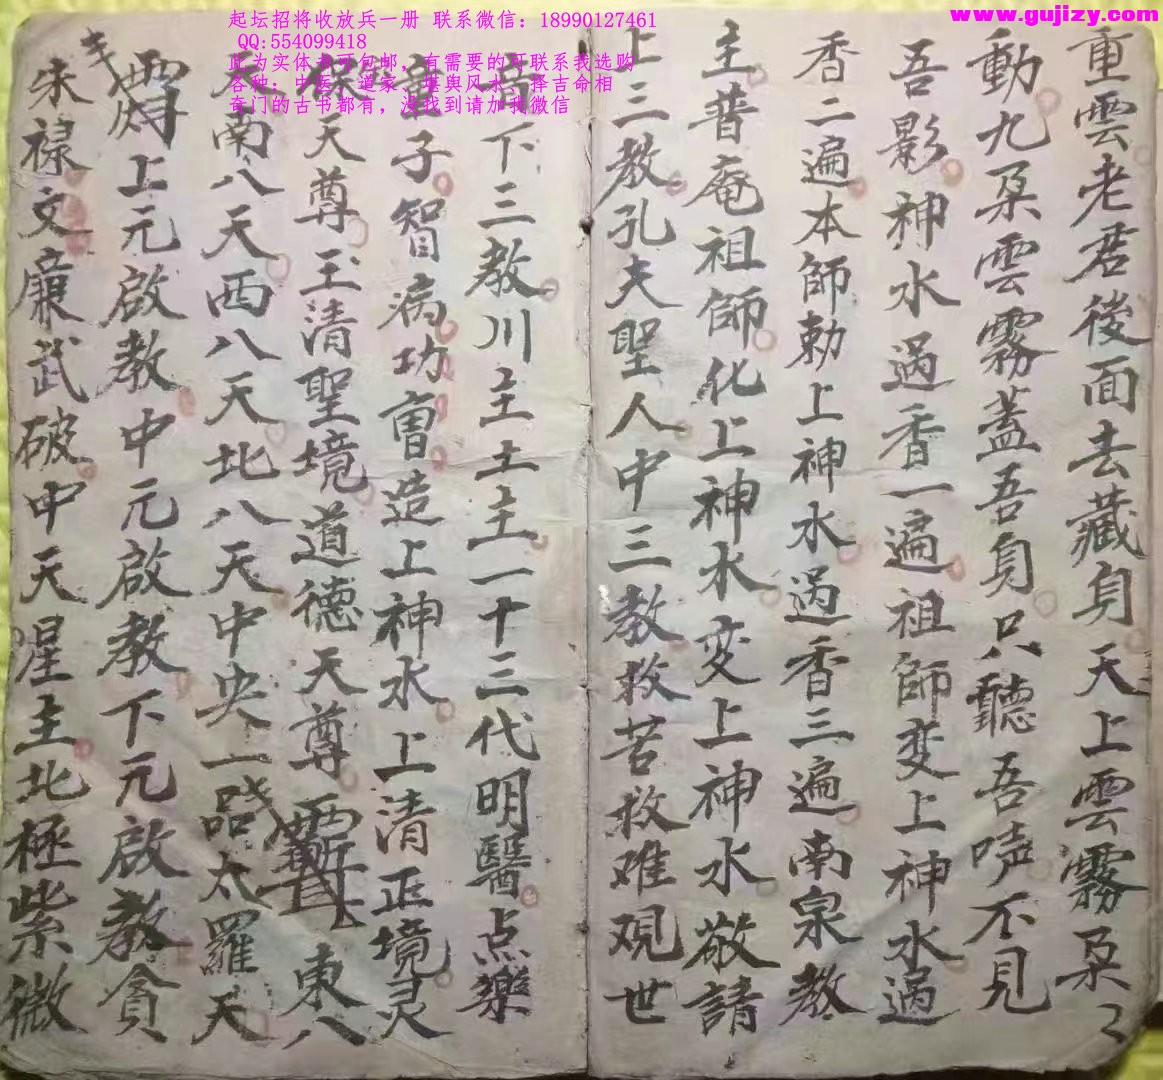 起坛招将收放兵一册 联系微信：18990127461
QQ:554099418
此为实体书可包邮，有需要的可联系我选购
各种：中医、道家、堪舆风水、择吉命相
奇门的古书都有，没找到请加我微信
www.gujizy.com
重雲老君後面去藏身天上雲霧朶〻
動九朶雲霧蓋吾身只聽吾声不見
吾影神水過香一遍祖師变上神水過
香二遍本師勅上神水過香三遍南泉教
主普庵祖師化上神水变上神水敬請
上三教孔夫聖人中三教救苦救难观世
音下三教川主土主一十三代明醫点藥
童子智病功曹造上神水上清正境灵
保天尊玉清聖境道德天尊 東八
天南八天西八天北八天中央一 太羅天
上元啟教中元啟教下元啟教貪
禄文廉武破中天星主北極紫微